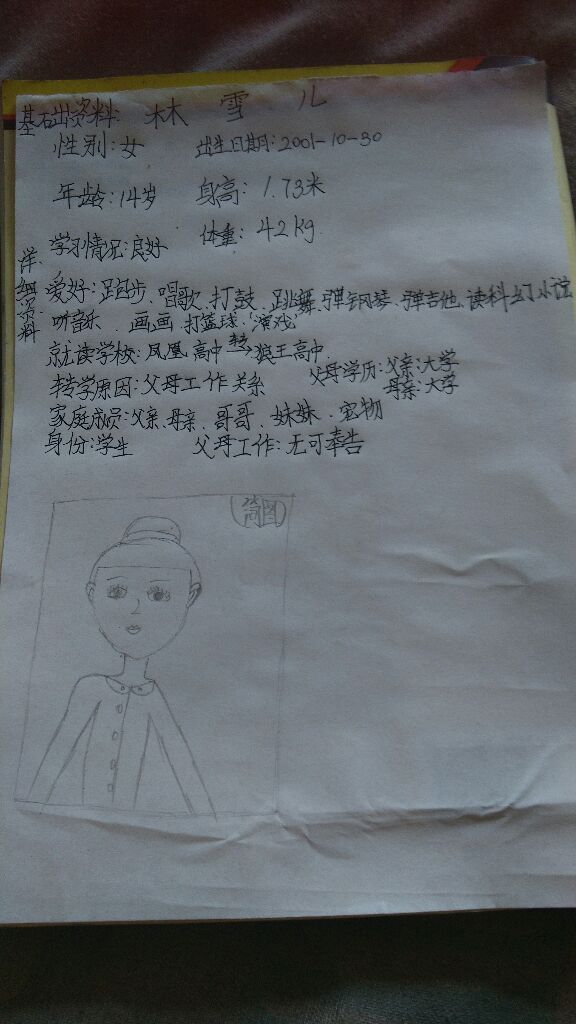 基础资料: 林 雪 儿
性别:女 出生日期:2001-10-30
年龄:14岁 身高:1.73米
学习情况:良好 体重:42kg
详细资料
爱好:跑步、唱歌、打鼓、跳舞、弹钢琴、弹吉他、读科幻小说
听音乐、画画、打篮球、演戏
就读学校:凤凰高中 转→ 狼王高中
转学原因:父母工作关系 父母学历:父亲:大学
母亲:大学
家庭成员:父亲、母亲、哥哥、妹妹、宠物
身份:学生 父母工作:无可奉告
简图